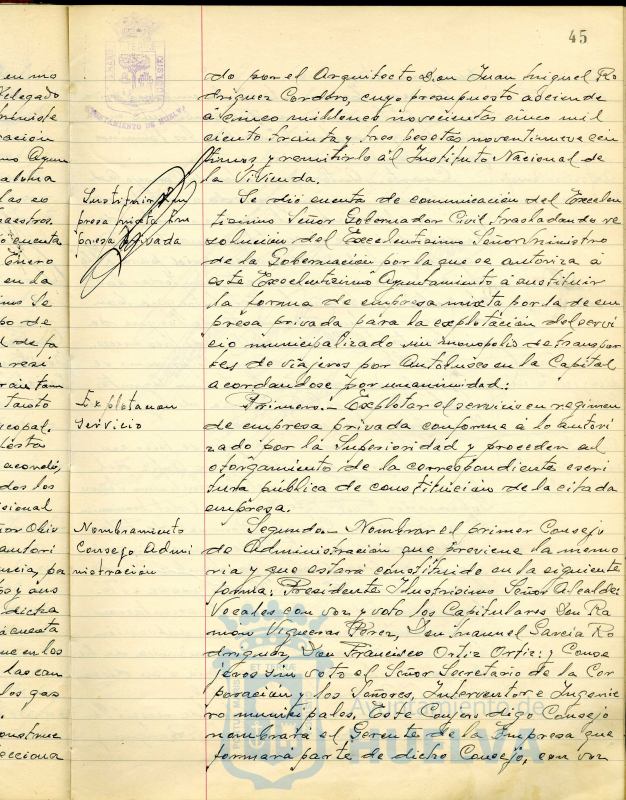 45
do por el Arquitecto Don Juan Miguel Ro
driguez Cordero, cuyo presupuesto asciende
a cinco millones novecientas cinco mil
ciento treinta y tres pesetas noventinueve cen
timos y remitirlo al Instituto Nacional de
la Vivienda.
Sustituir em
presa mixta em
presa privada
Se dió cuenta de comunicación del Excelen
tisimo Señor Gobernador Civil trasladando re
solución del Excelentisimo Señor Ministro
de la Gobernación por la que se autoriza a
este Excelentisimo Ayuntamiento a sustituir
la forma de empresa mixta por la de em
presa privada para la explotación del servi
cio municipalizado sin monopolio de transpor
tes de viajeros por Autobuses en la Capital
acordandose por unanimidad:
Explotacion
servicio
Primero.- Explotar el servicio en regimen
de empresa privada conforme a lo autori
zado por la Superioridad y proceden al
otorgamiento de la correspondiente escri
tura pública de constitución de la citada
empresa.
Nombramiento
Consejo Admi
nistración
Segundo.- Nombrar el primer Consejo
de Administración que previene la memo
ria y que estará constituido en la siguiente
forma: Presidente Ilustrisimo Señor Alcalde:
Vocales con voz y voto los Capitulares Don Ra
mon Vigueras Perez, Don Manuel Garcia Ro
driguez, Don Francisco Ortiz Ortiz: y Conse
jeros sin voto el Señor Secretario de la Cor
poración y los Señores, Interventor e Ingenie
ro municipales. Este Conjero digo Consejo
nombrará el Gerente de la Empresa que
formará parte de dicho Consejo, con voz
AYUNTAMIENTO DE HUELVA
Ayuntamiento de
HUELVA